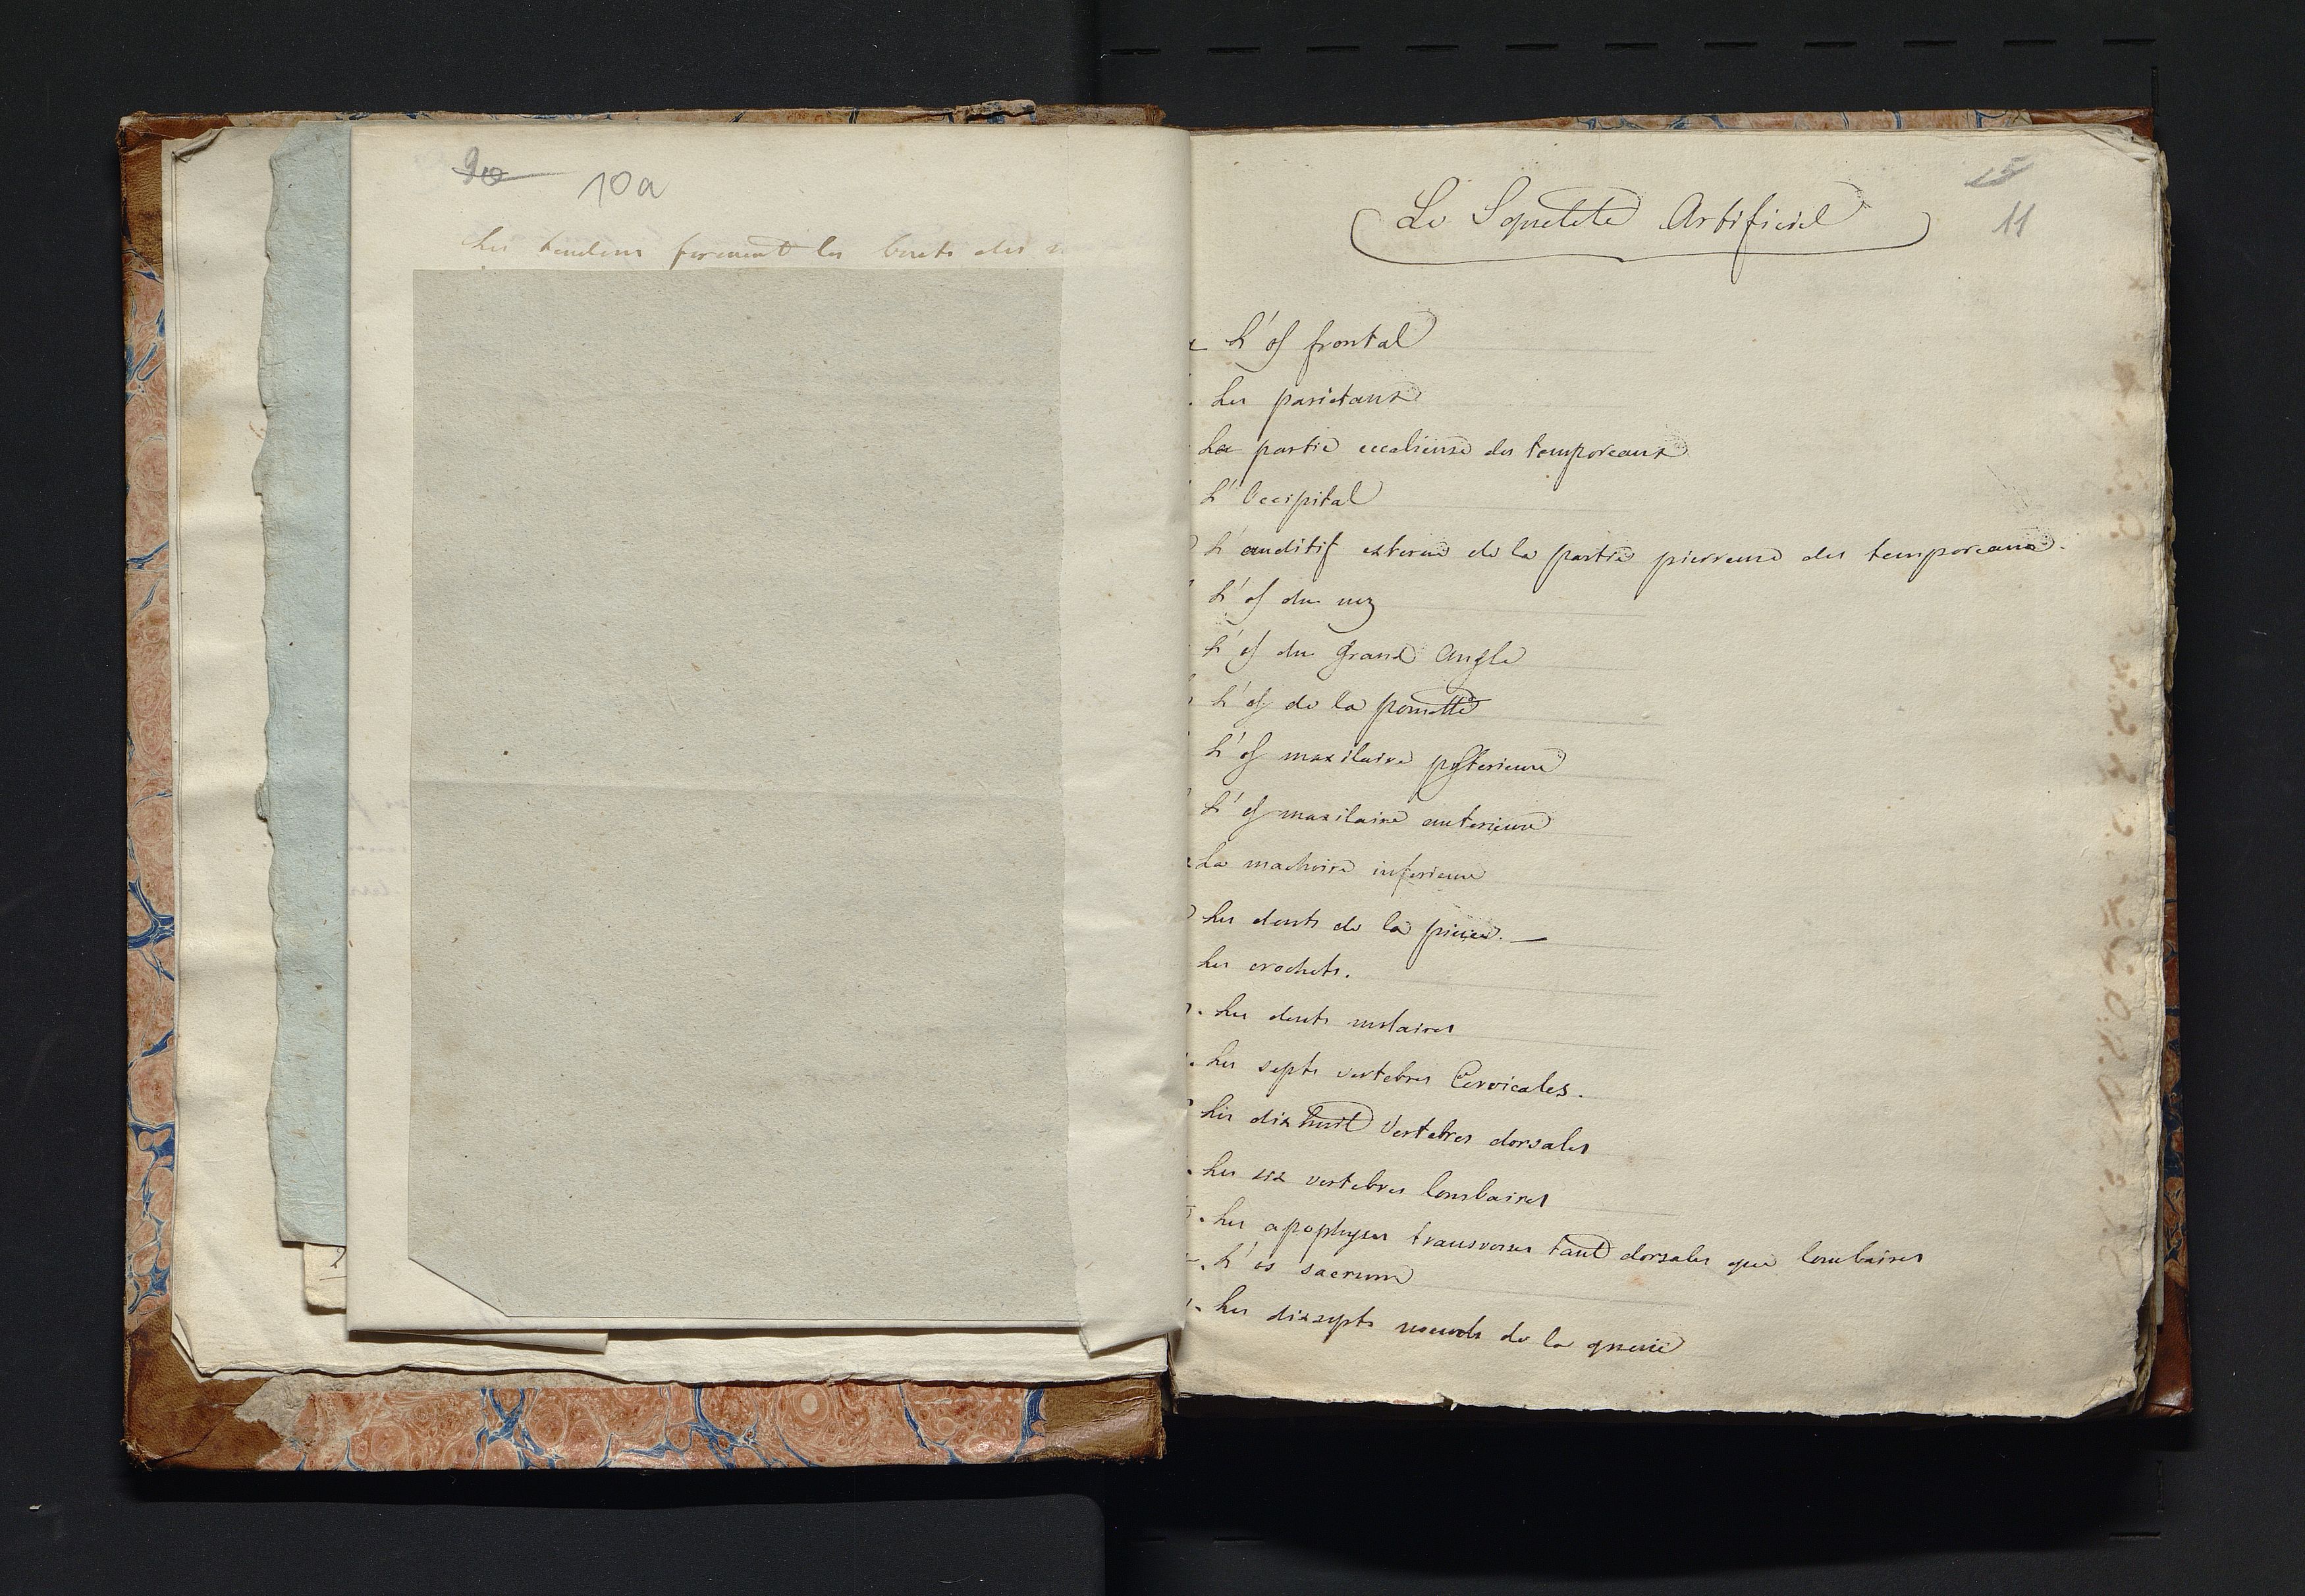 10a
Les tendons forment les bouts des
11
Le Squelete Artificiel
L'os frontal
Les parietaux
La partie eccalieuse des temporeaux
L'Occipital
L'auditif externe de la partie pierreuse des temporeaux.
L'os du nez
L'os du Grand Angle
L'os de la pomette
L'os maxilaire posterieure
L'os maxilaire anterieure
La machoire inferieure
Les dents de la pince. —
Les crochets.
Les dents molaires
Les septs vertebres Cervicales.
Les dix huit Vertebres dorsales
Les six vertebres lombaires
Les apophyses transverses tant dorsales que lombaires
L'os sacrum
Les dixsepts noeuds de la queue